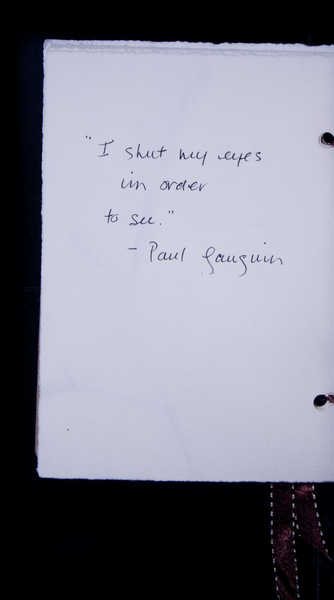 "I shut my eyes
in order
to see."
- Paul Gauguin